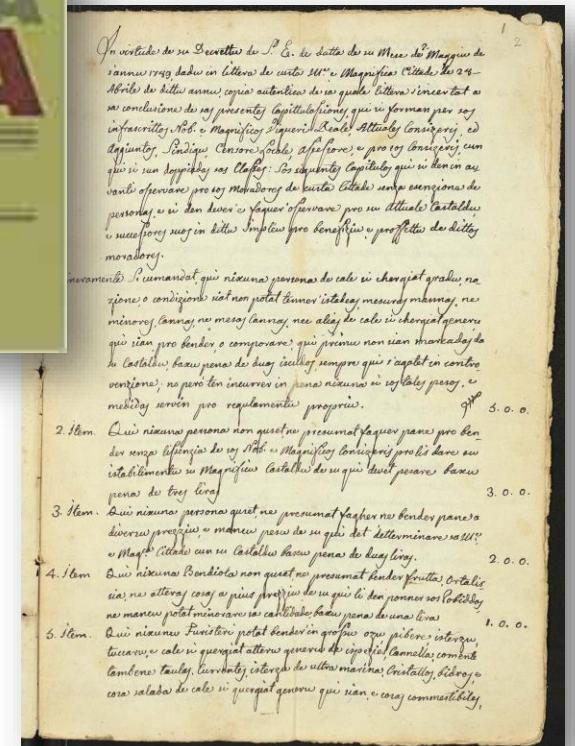 A
1 2
In virtude de su Decrettu de S. E. de datta de su Mese de Maggiu de
s'annu 1789 dadu in littera de custa Ill.e e Magnifica Cittade de 28
Abrile de dittu annu, copia autentica de sa quale littera s'incertat a
sa conclusione de sas presentes Capittulasiones, qui si forman per sos
infrascrittos Nob. e Magnificos Reale Attuales Consizeris, ed
Aggiuntos, Sindigu, Censore Locale, Assessore e pro sos Consizeris cun
qui si sun doppiadas sas Classes: Sos sequentes Capitulos qui si den in av
vanti osservare pro sos Moradores de custa Cittade senza esenzione de
personas e si den dever'e faguer'osservare pro su Attuale Castaldu
e sucessores suos in dittu Impleu pro benefiziu e proffettu de dittos
moradores.
Si cumandat, qui nixuna persona de cale si chergiat gradu, na
zione o condizione siat non potat tenner'istadeas, mesuras mannas, ne
minores, Cannas, ne mesas Cannas, nec ateras de cale si chergiat generu
qui sian pro bender, o comporare, qui primu non sian marcadas da
su Castaldu, baxu pena de duos iscudos, sempre qui s'agatet in contro
venzione; ne però ten incurrer in pena nixuna si sos tales pesos, e
medidas servin pro regulamentu propriu. 5. 0. 0.
2. Item. Qui nixuna persona non quset ne presumat faguer pane pro ben
der senza lisenzia de sos Nob. e Magnificos Consizeris pro lis dare su
istabilimentu su Magnificu Castaldu de su qui devet pesare baxu
pena de tres liras 3. 0. 0.
3. Item. Qui nixuna persona quset, ne presumat fagher ne bender pane a
diversu prezziu, e mancu pesu de su qui det determinare sa Ill.e
e Mag.ca Cittade cun su Castaldu baxu pena de duas liras. 2. 0. 0.
4. Item Qui nixuna Bendiola non quset, ne presumat bender frutta, Ortalis
sia, ne atteras cosas a pius prezziu de su qui li den ponner sos Pobiddos,
ne mancu potat minorare sa cantidade, baxu pena de una lira 1. 0. 0.
5. Item. Qui nixunu Furisteri potat bender in grossu ozu, pibere, isterzu,
tuccaru, e cale si quergiat atteru generu de ispezie, Cannella, comente
tambene taulas, Currentes, isterzos de ultra marina, Cristallos, bidros, e
cosa salada de cale si quergiat generu qui sian, e cosas commestibiles,